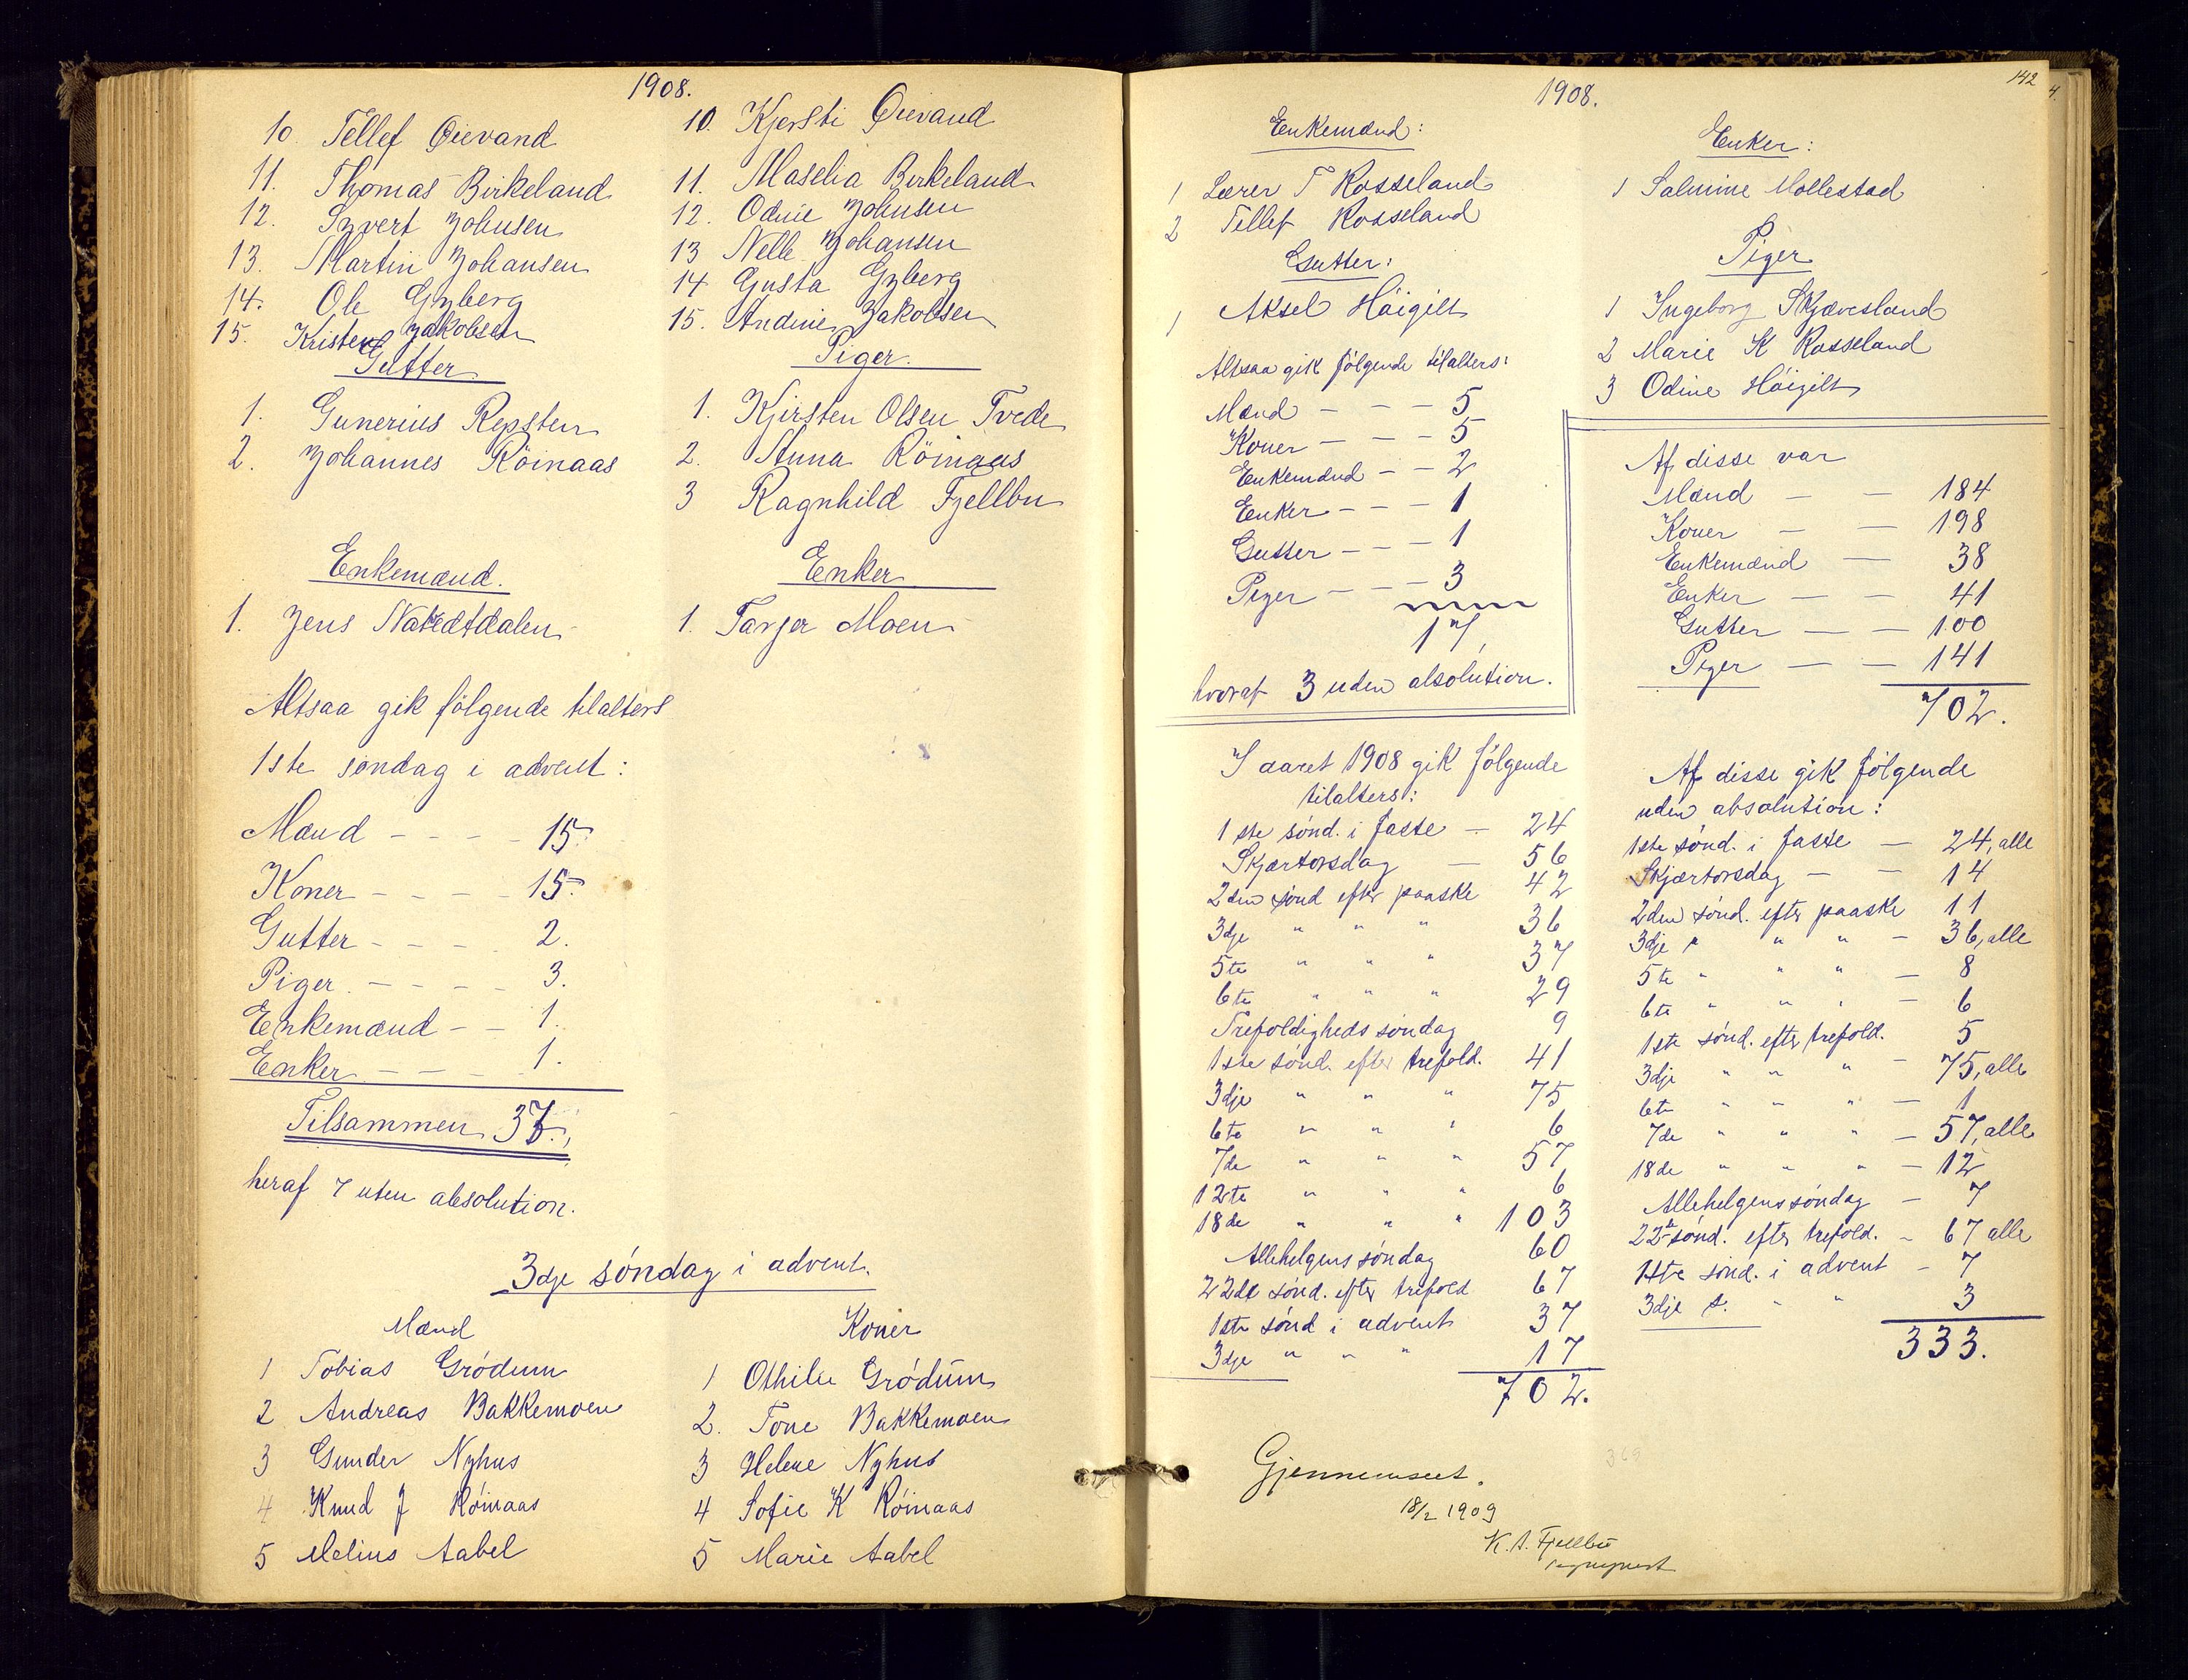 1908.
10. Tellef Öievand
11. Thomas Birkeland
12. Syvert Johnsen
13. Martin Johansen
14. Ole Gyberg
15. Kristen Jakobsen
Gutter
1. Gunerius Repsten
2. Johannes Röinaas
Enkemænd.
1. Jens
Altsaa gik fölgende tilalters
1ste söndag i advent:
Mænd - - - - 15
Koner - - - - 15
Gutter - - - - 2.
Piger - - - - 3.
Enkemænd - - 1.
Enker - - - - 1.
Tilsammen 37.
heraf 7 uten absolution.
10. Kjersti Öievand
11. Maselia Birkeland
12. Odine Johnsen
13 Nelle Johansen
14 Gusta Gyberg
15. Andine Jakobsen
Piger.
1. Kjirsten Olsen Tvede
2. Anna Röinaas
3 Ragnhild Fjellbu
Enker
1. Tarjer Moen
3dje söndag i advent.
Mænd
1 Tobias Grödum
2 Andreas Bakkemoen
3 Gunder Nyhus
4 Knud J Röinaas
5 Melius Aabel
Koner
1 Othilie Grödum
2. Tone Bakkemoen
3 Helene Nyhus
4 Sofie K Röinaas
5 Marie Aabel
142
4.
1908.
Enkemænd:
1 Lærer T Rosseland
2 Tellef Rosseland
Gutter:
1 Aksel Höigilt
Altsaa gik fölgende tilalters:
Mænd - - - 5
Koner - - - 5
Enkemænd - - 2
Enker - - - 1
Gutter - - - 1
Piger - - - 3
17
hvoraf 3 uden absolution.
Enker:
1 Salmine Mollestad
Piger
1 Ingeborg Skjævesland
2 Marie K Rosseland
3 Odine Höigilt
Af disse var
Mænd - - 184
Koner - - 198
Enkemænd - 38
Enker - - 41
Gutter - - 100
Piger - - 141
702.
I aaret 1908 gik fölgende
tilalters:
1ste sönd. i faste - 24
Skjærtorsdag - 56
2den sönd efter paaske 42
3dje " " " 36
5te " " " 37
6te " " " 29
Trefoldigheds söndag 9
1ste sönd. efter trefold. 41
3dje " " " 75
6te " " " 6
7de " " " 57
12te " " " 6
18de " " " 103
Allehelgens söndag 60
22de sönd. efter trefold 67
1ste sönd i advent 37
3dje " " " 17
702.
Af disse gik fölgende
uden absolution:
1ste sönd. i faste - 24, alle
Skjærtorsdag - - 14
2den sönd. efter paaske 11
3dje " " " - 36, alle
5te " " " - 8
6te " " " - 6
1ste sönd. efter trefold. 5
3dje " " " - 75, alle
6te " " " - 1
7de " " " - 57, alle
18de " " " - 12
Allehelgens söndag - 7
22de sönd. efter trefold. - 67 alle
1ste sönd. i advent - 7
3dje s. " " 3
333.
369
Gjennemseet.
18/2 1909
K. A. Fjellbu
sogneprest